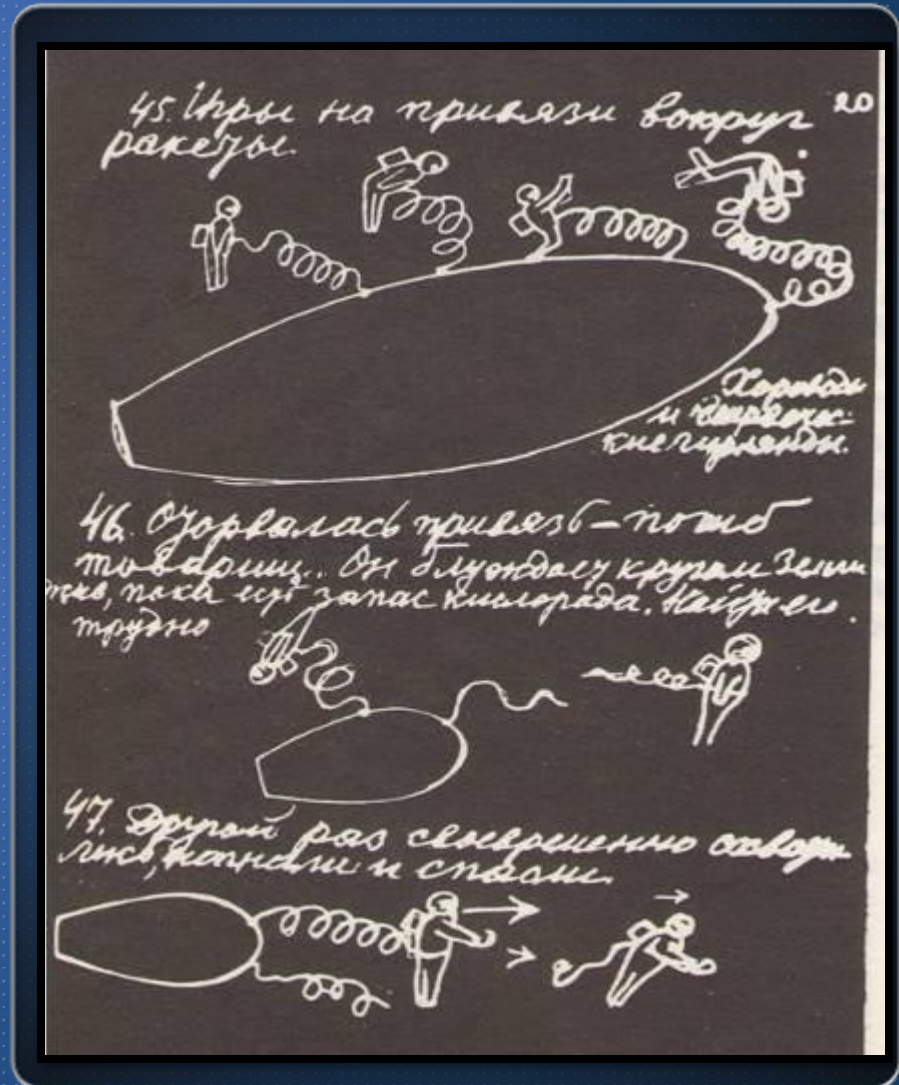 45. Игры на привязи вокруг 20
ракеты.
Хороводы
и
кие гирлянды.
46. Оторвалась привязь – погиб
товарищ.. Он блуждает кругом Земли
жив, пока есть запас кислорода. Найти его
трудно
47. Другой раз своевременно схвати
лись, нагнали и спасли.